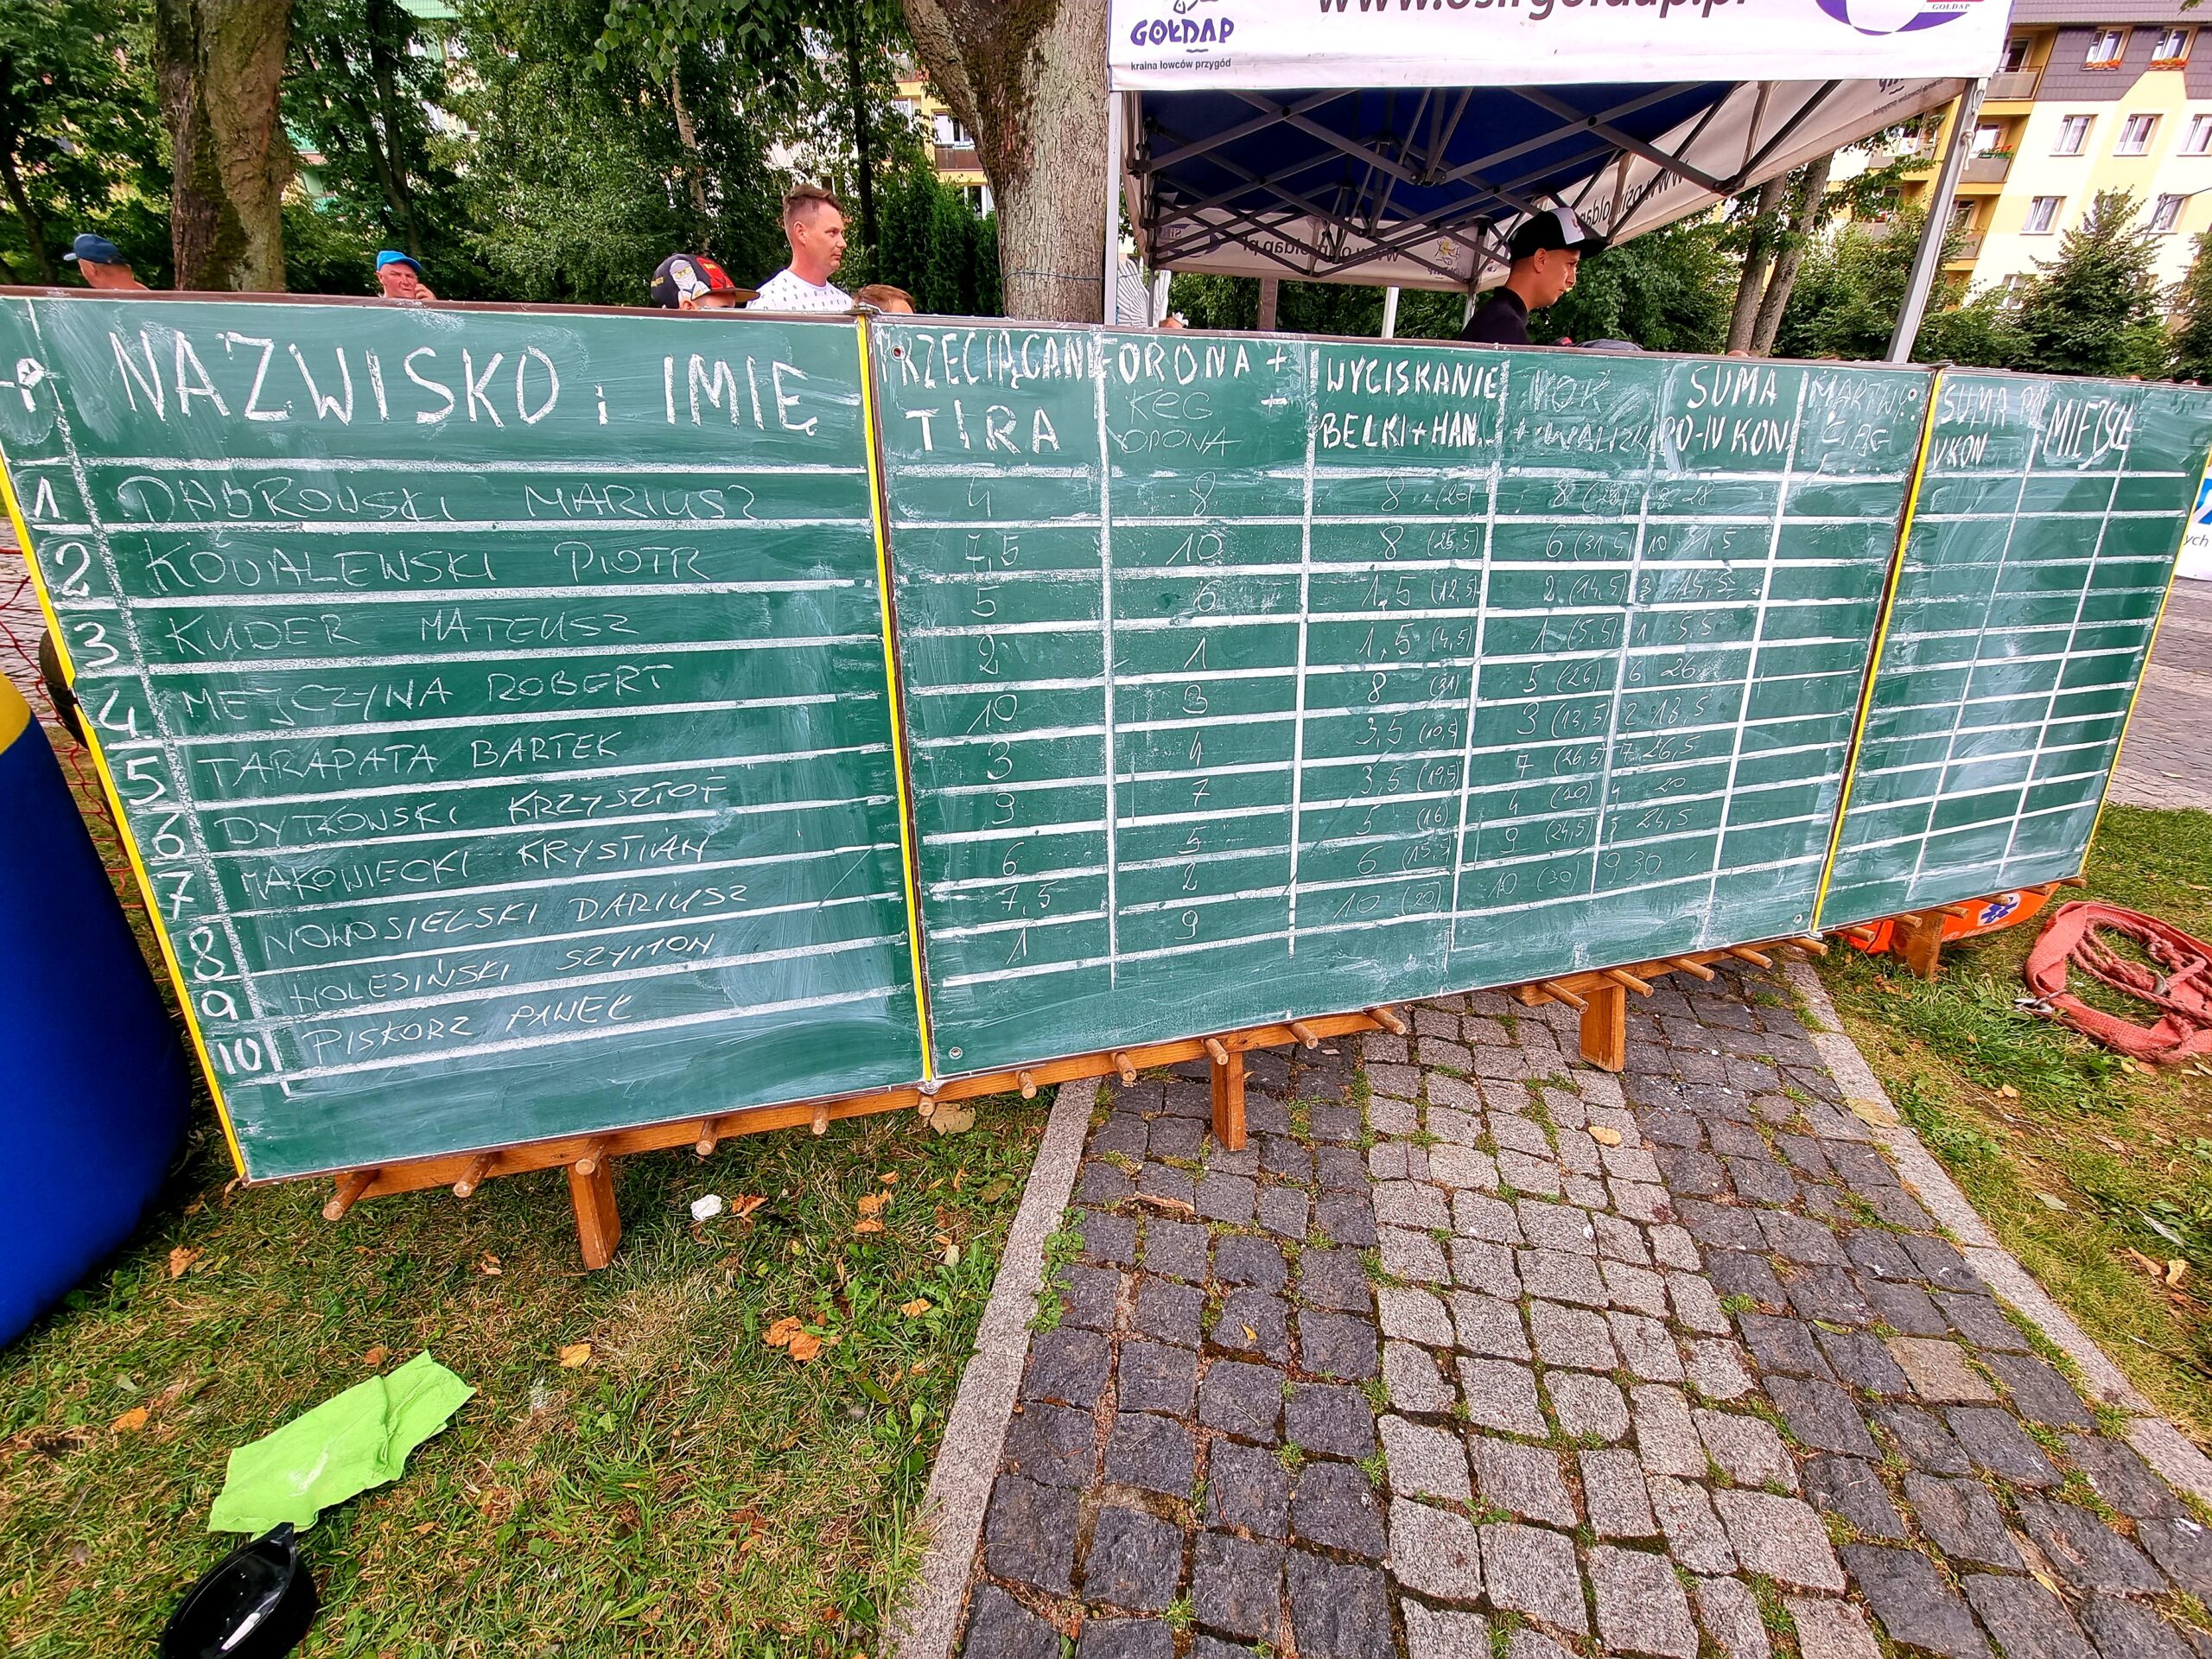 www.osirgoldap.pl
GOŁDAP
kraina łowców przygód
GOŁDAP
NAZWISKO i IMIĘ PRZECIĄGANIE TIRA OPONA + KEG + OPONA WYCISKANIE BELKI + HAN. SUMA PO-IV KON MARTWY CIĄG SUMA VKON MIEJSCE
1 DĄBROWSKI MARIUSZ 4 8 8 (20) 8 28
2 KOWALEWSKI PIOTR 7,5 10 8 (25,5) 6 (31,5) 10 31,5
3 KUDER MATEUSZ 5 6 1,5 (12,5) 2 (14,5) 3 14,5
4 MEJCZYNA ROBERT 2 1 1,5 (4,5) 1 (5,5) 1 5,5
5 TARAPATA BARTEK 10 3 8 (21) 5 (26) 6 26
6 DYTKOWSKI KRZYSZTOF 3 4 3,5 (10,5) 3 (13,5) 2 13,5
7 MAKOWIECKI KRYSTIAN 9 7 3,5 (19,5) 7 (26,5) 7 26,5
8 NOWOSIELSKI DARIUSZ 6 5 5 (16) 4 (20) 4 20
9 HOLESIŃSKI SZYMON 7,5 2 6 (15,5) 9 (24,5) 5 24,5
10 PISKORZ PAWEŁ 1 9 10 (20) 10 (30) 9 30